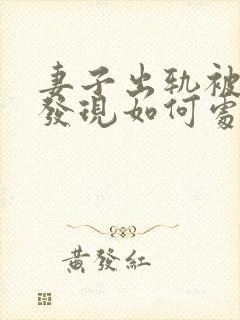 妻子出轨被
發現如何處
黃發紅